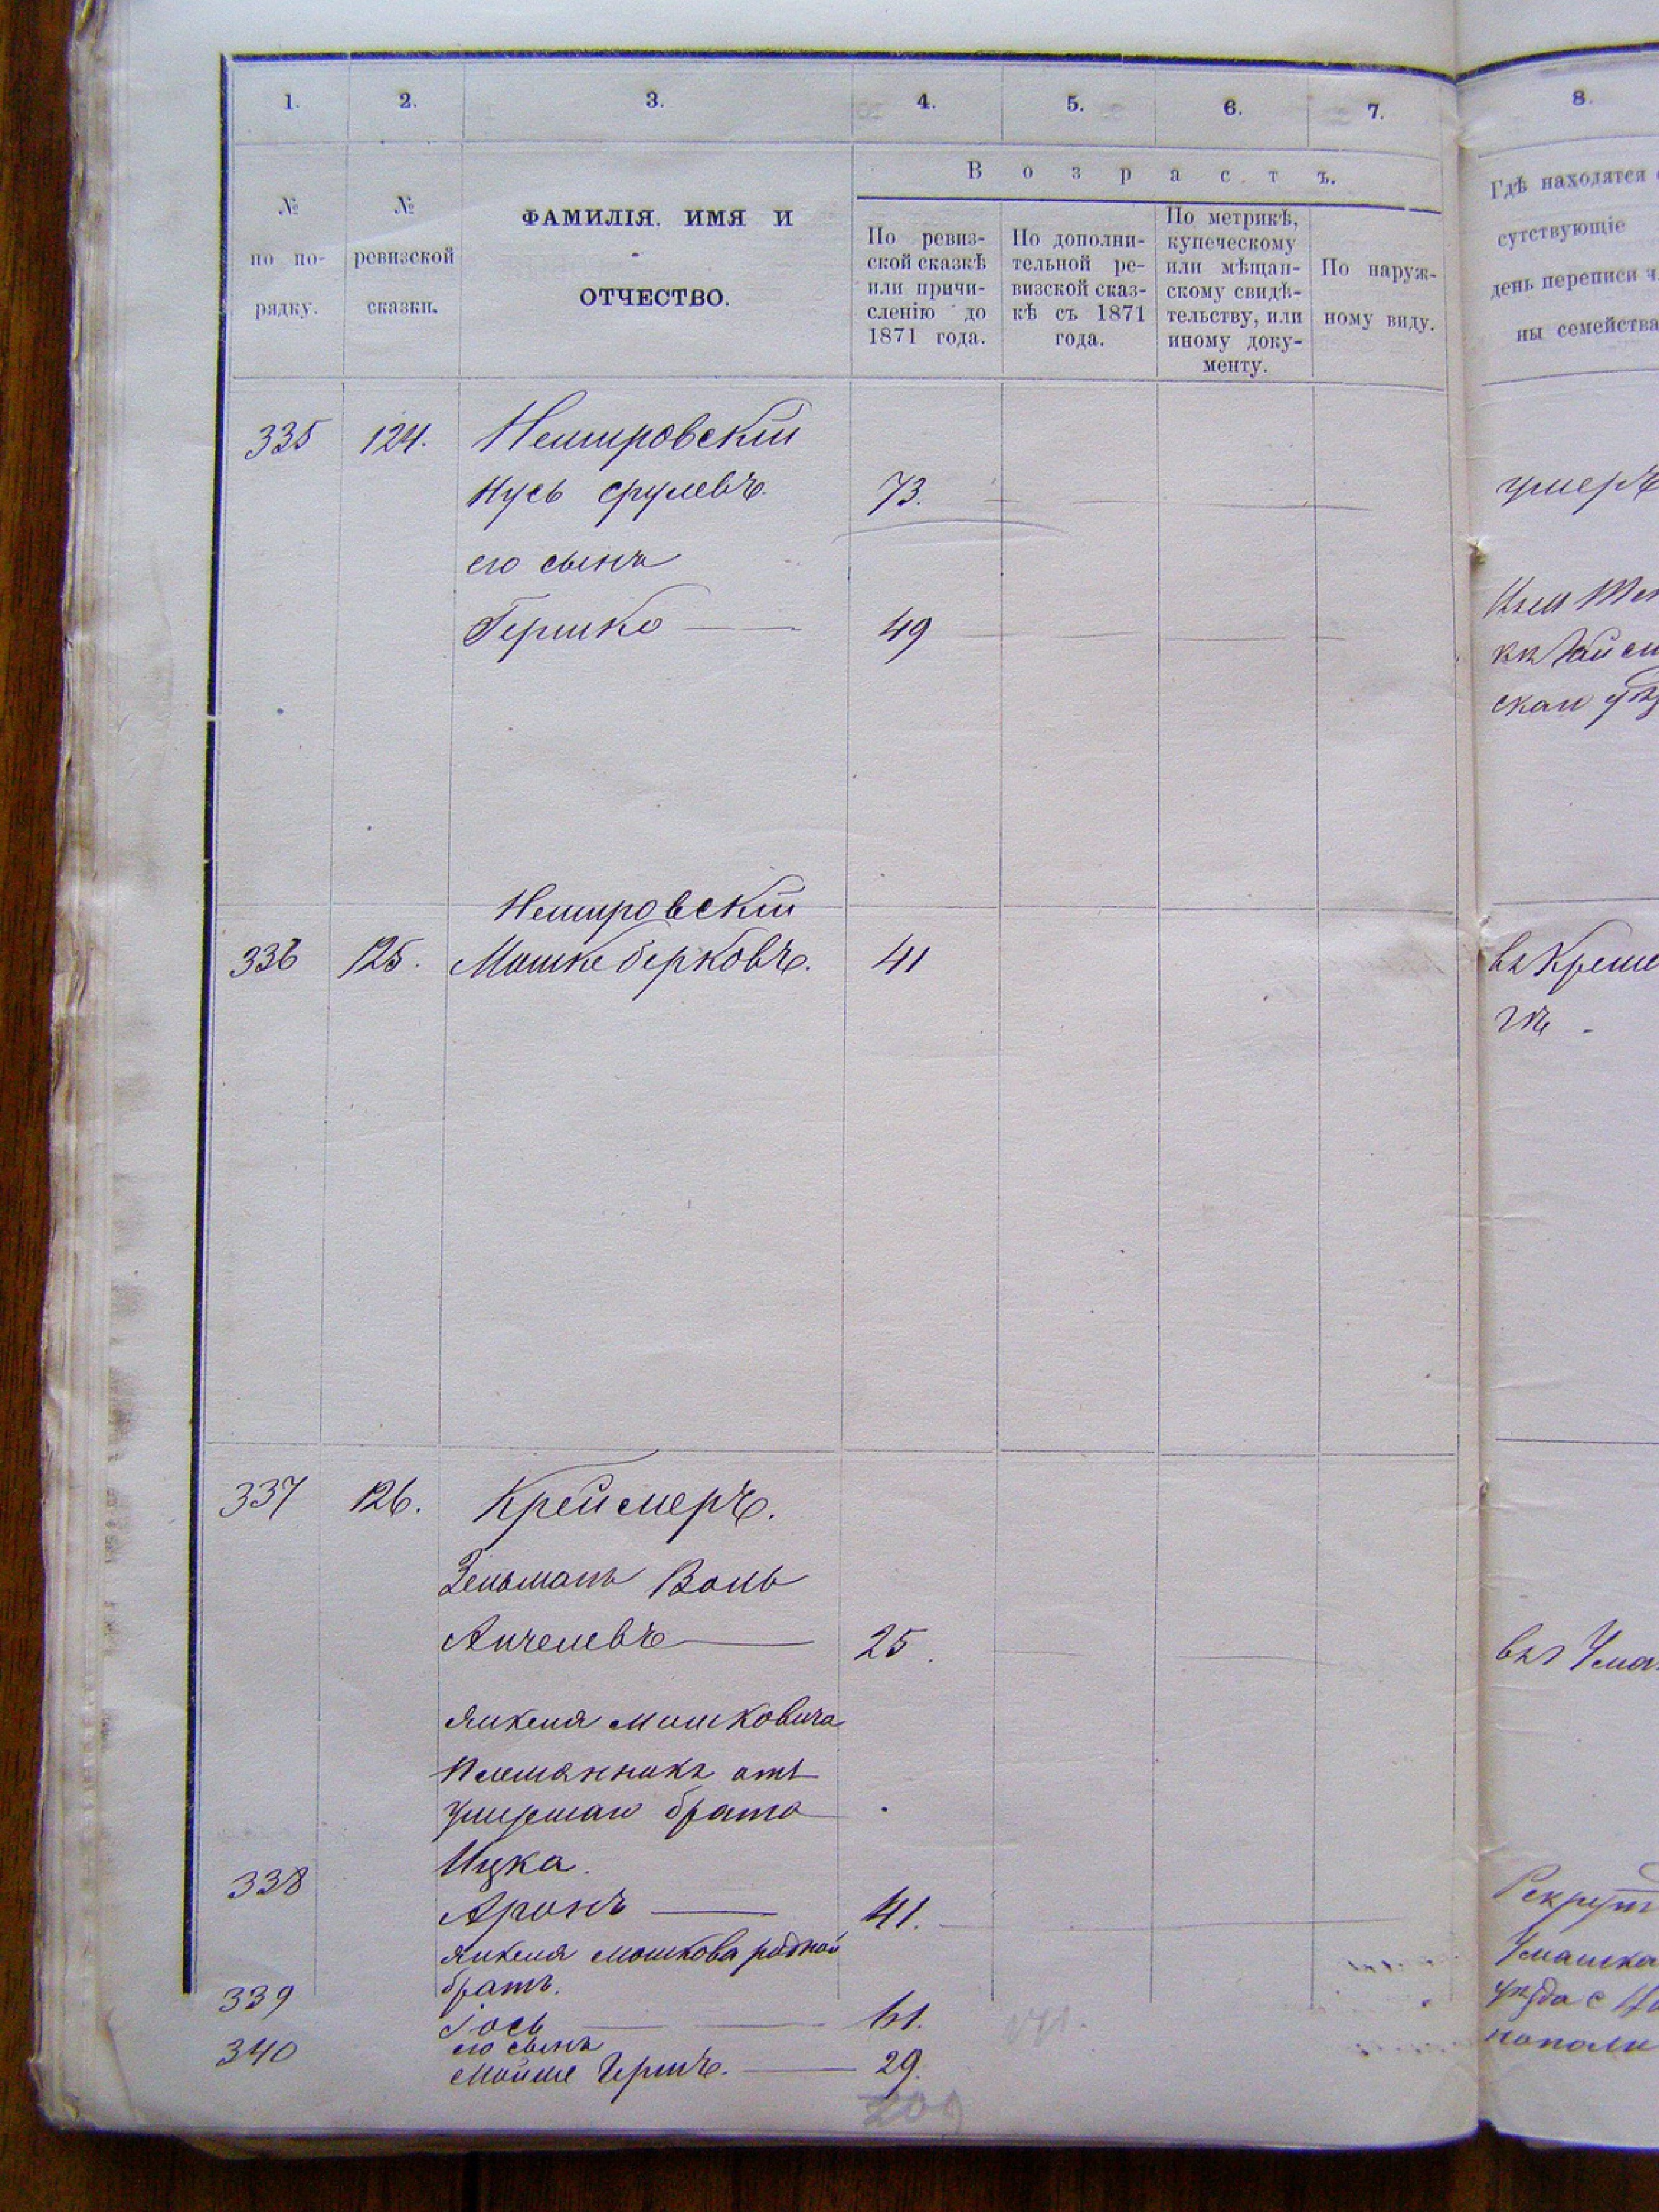 1. 2. 3. 4. 5. 6. 7. 8.
№ по по-рядку.
№ ревизской сказки.
ФАМИЛІЯ, ИМЯ И
ОТЧЕСТВО.
Возрастъ.
По ревиз-
ской сказкѣ
или причи-
сленію до
1871 года.
По дополни-
тельной ре-
визской сказ-
кѣ съ 1871
года.
По метрикѣ,
купеческому
или мѣщан-
скому свидѣ-
тельству, или
иному доку-
менту.
По наруж-
ному виду.
Гдѣ находятся
сутствующіе
день переписи
ны семейства
335 124. Немировскій
Нусь Срулевъ. 73. умеръ
его сынъ
Гершко 49
Немировскій
336 125. Мошке Берковъ. 41 въ Креме
гѣ
337 126. Креймеръ.
Зельманъ Воль
Анчелевъ 25. въ Ума
Янкеля Мошковича
Племянникъ отъ
умершаго брата
Ицка.
338 Аронъ 41. Рекрут
Янкеля Мошкова родной
братъ.
339 Іось 61.
его сынъ
340 Мойше Гершъ. 29.
209